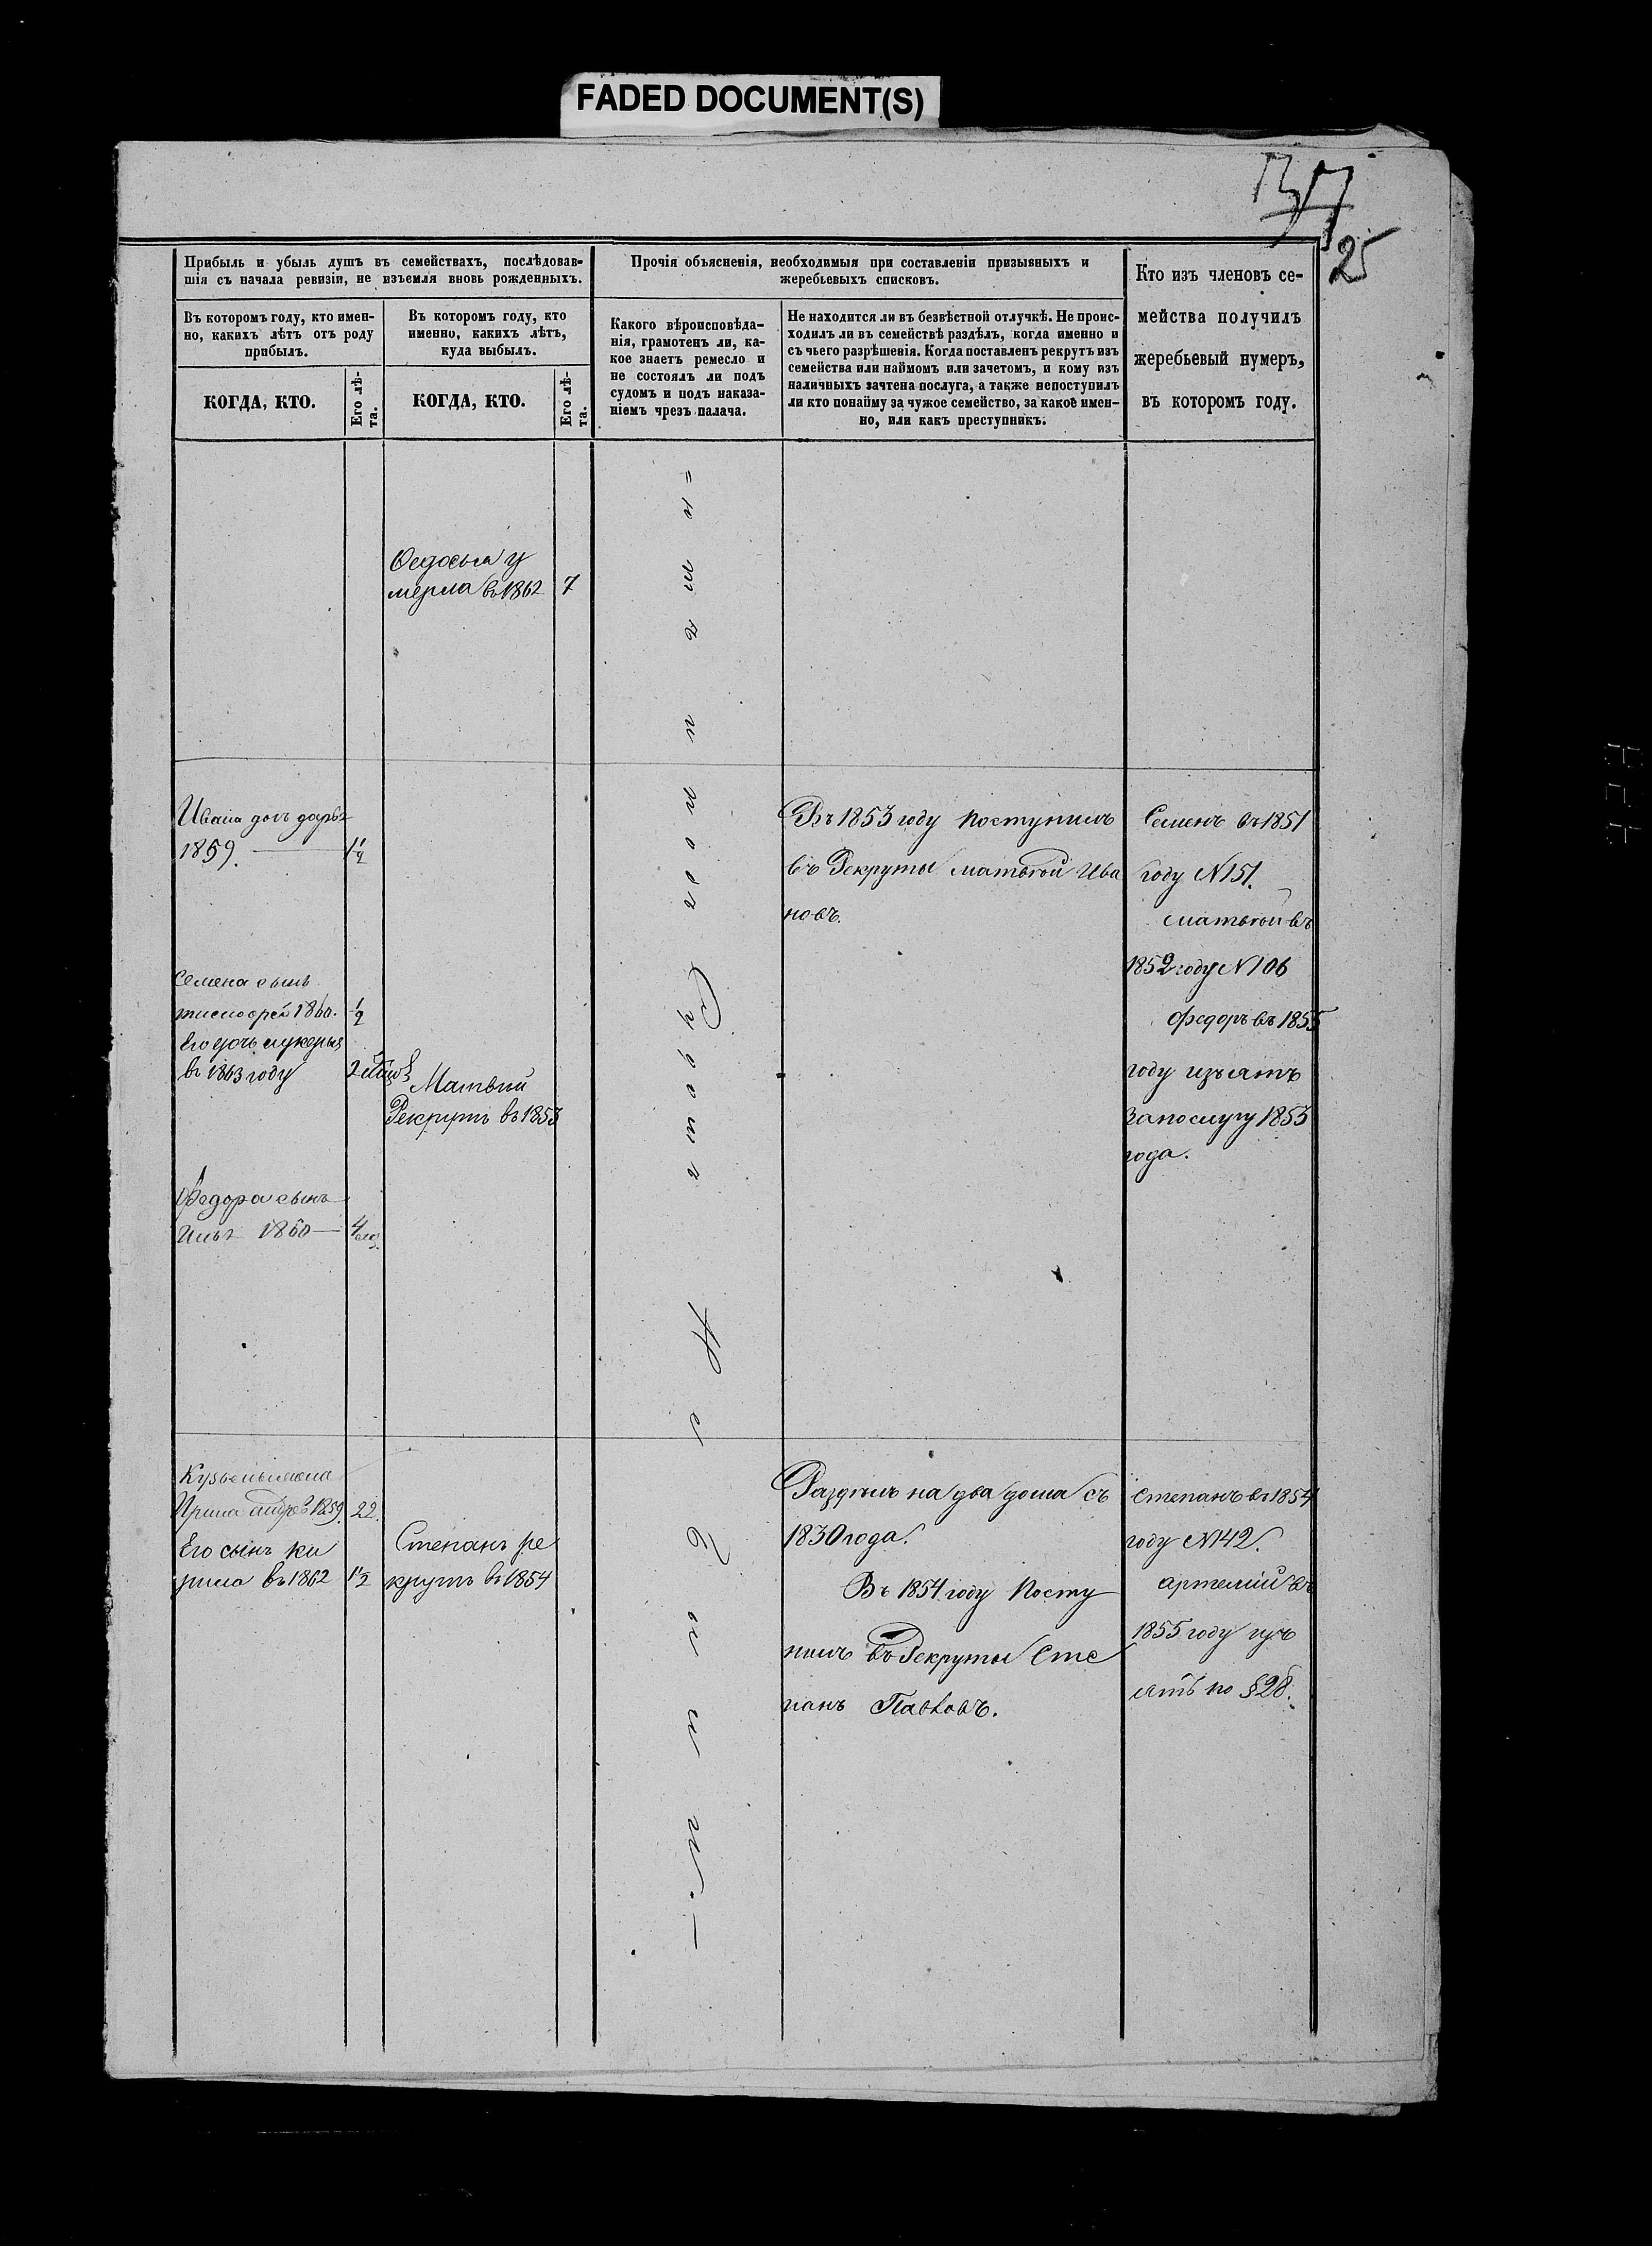 FADED DOCUMENT(S)
25
Прибыль и убыль душъ въ семействахъ, послѣдовав-
шія съ начала ревизіи, не изъемля вновь рожденныхъ.
Въ которомъ году, кто имен-
но, какихъ лѣтъ отъ роду
прибылъ.
КОГДА, КТО.
Его лѣ-
та.
Въ которомъ году, кто
именно, какихъ лѣтъ,
куда выбылъ.
КОГДА, КТО.
Его лѣ-
та.
Прочія объясненія, необходимыя при составленіи призывныхъ и
жеребьевыхъ списковъ.
Какого вѣроисповѣда-
нія, грамотенъ ли, ка-
кое знаетъ ремесло и
не состоялъ ли подъ
судомъ и подъ наказа-
ніемъ чрезъ палача.
Не находится ли въ безвѣстной отлучкѣ. Не проис-
ходилъ ли въ семействѣ раздѣлъ, когда именно и
съ чьего разрѣшенія. Когда поставленъ рекрутъ изъ
семейства или наймомъ или зачетомъ, и кому изъ
наличныхъ зачтена послуга, а также непоступилъ
ли кто понайму за чужое семейство, за какое имен-
но, или какъ преступникъ.
Кто изъ членовъ се-
мейства получилъ
жеребьевый нумеръ,
въ которомъ году.
Федосья у
мерла въ 1862 7
Ивана доч дарья
1859. 1½
Семена сынъ
тимофей 1860. ½
Его дочь лукерья
въ 1863 году
Матвѣй
Рекрутъ въ 1853
Федора сынъ
Илья 1860 — 4
Въ 1853 году поступилъ
въ Рекруты матвѣй Ива
новъ.
Семенъ въ 1851
году N 151.
матвѣй въ
1852 году N 106
Федоръ въ 1855
году изъятъ
за послугу 1853
года.
Кузьмы жена
Ирина андрев 1859. 22.
Его сынъ ки
рила въ 1862 1½
Степанъ ре
крутъ въ 1854
Раздѣлъ на два дома съ
1830 года.
Въ 1854 году Посту
пилъ въ Рекруты Сте
панъ Павловъ.
Степанъ въ 1854
году N 142.
артемій въ
1855 году изъ
ятъ по § 28.